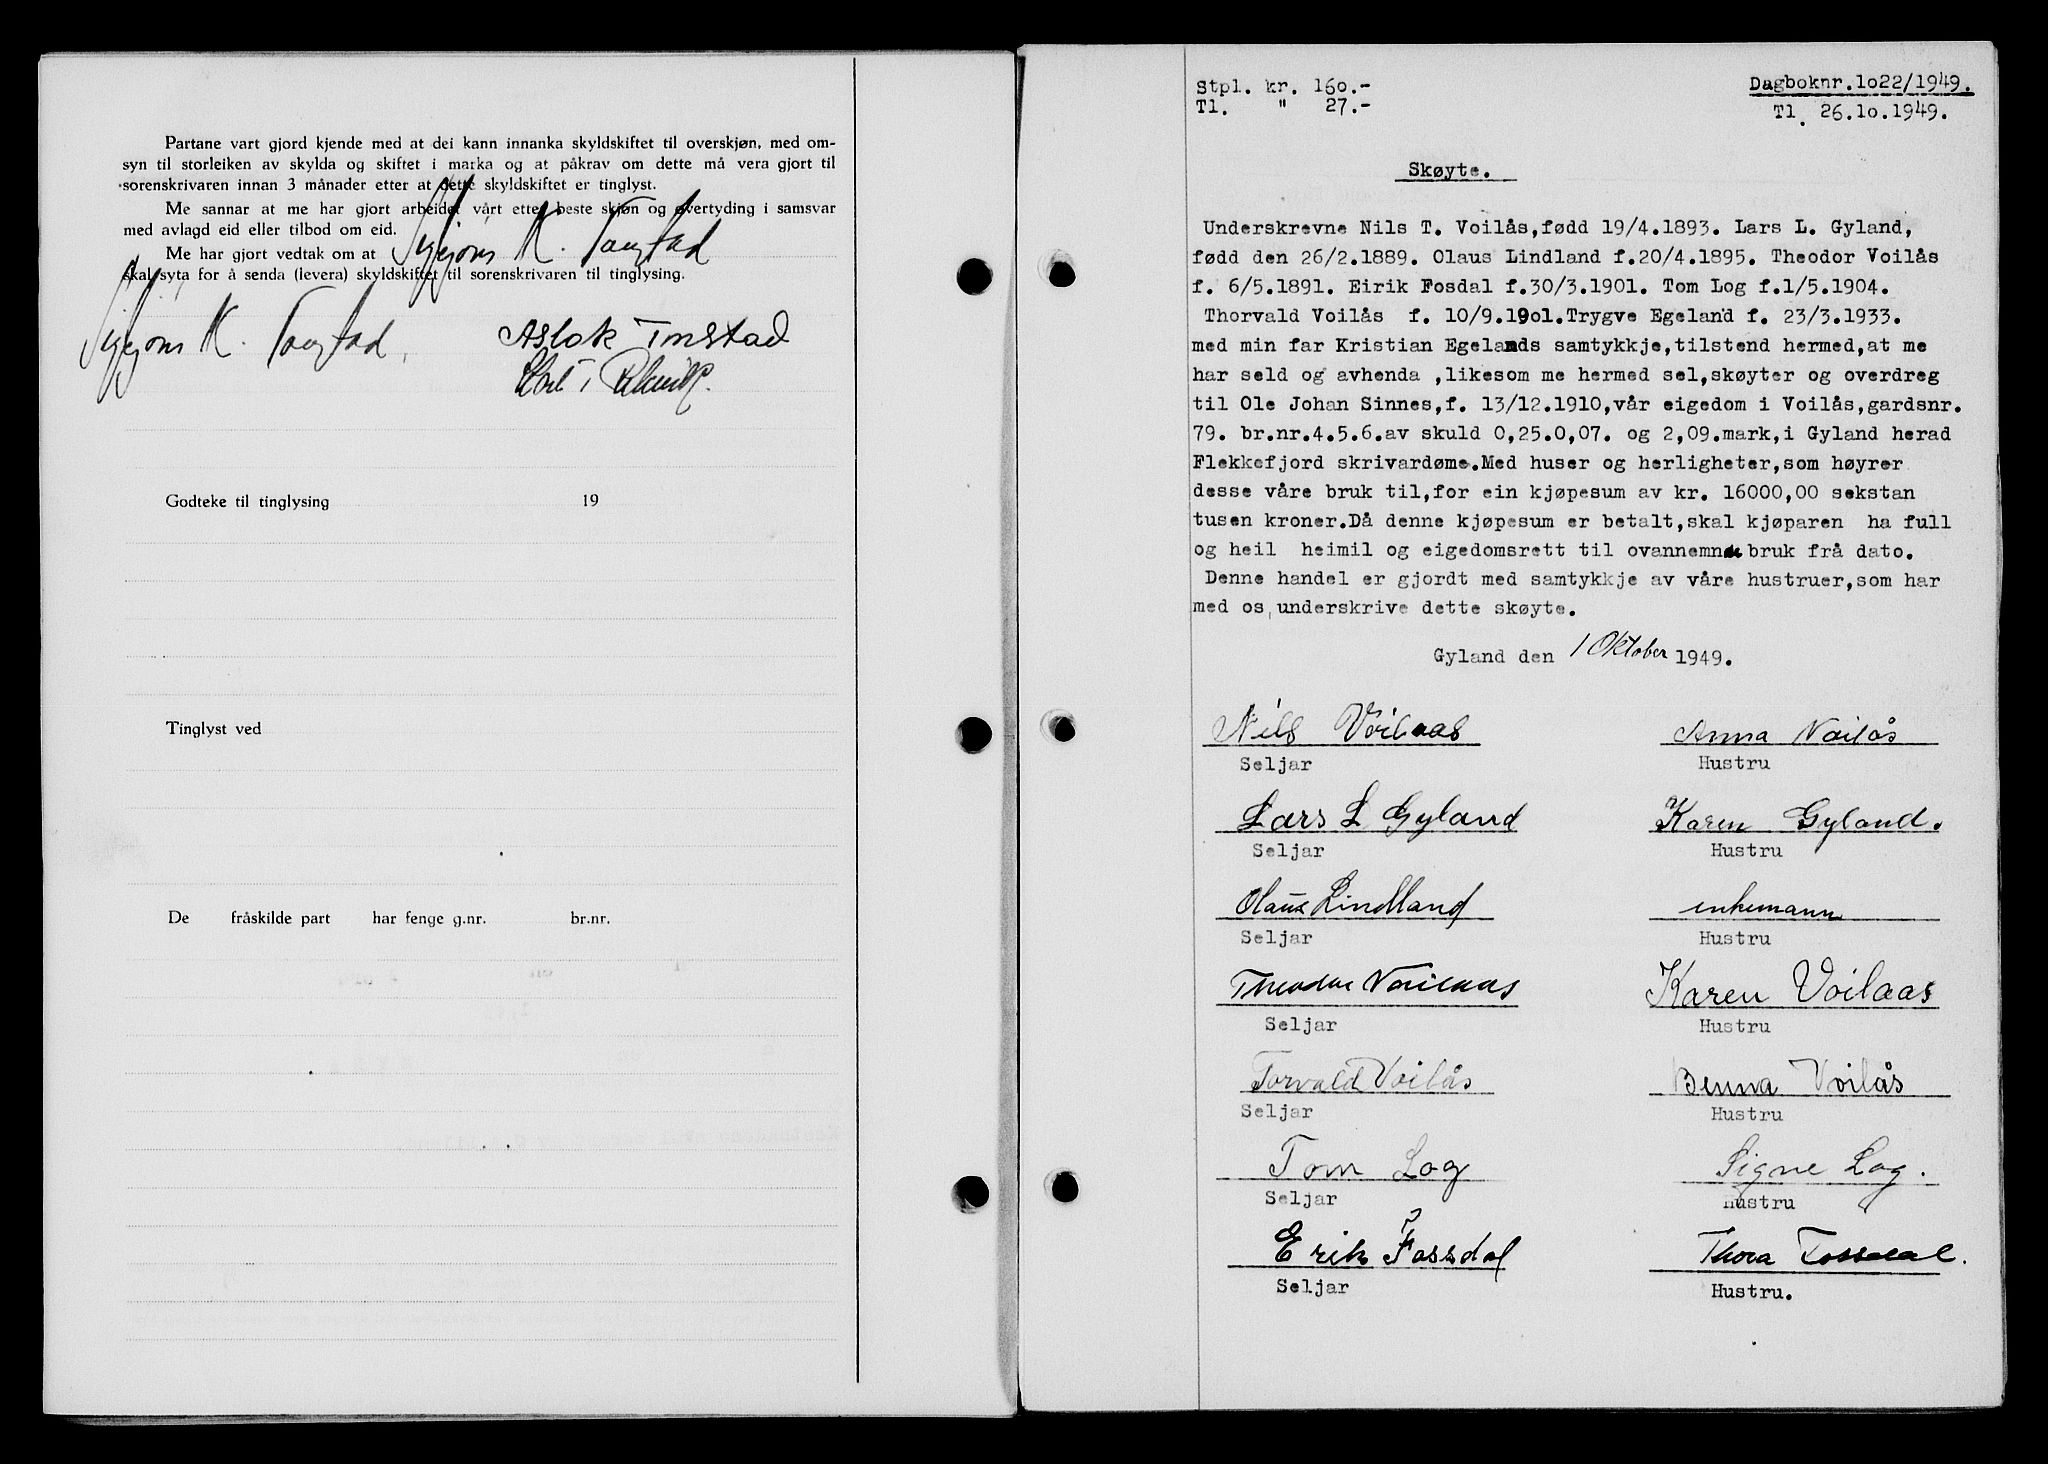 Partane vart gjord kjende med at dei kann innanka skyldskiftet til overskjøn, med om-
syn til storleiken av skylda og skiftet i marka og at påkrav om dette må vera gjort til
sorenskrivaren innan 3 månader etter at dette skyldskiftet er tinglyst.
Me sannar at me har gjort arbeidet vårt etter beste skjøn og overtyding i samsvar
med avlagd eid eller tilbod om eid.
Me har gjort vedtak om at
skal syta for å senda (levera) skyldskiftet til sorenskrivaren til tinglysing.
Aslak
Godteke til tinglysing 19
Tinglyst ved
De fråskilde part har fenge g.nr. br.nr.
Stpl. kr. 160.-
Tl. " 27.-
Dagboknr.1022/1949.
Tl. 26.10.1949.
Skøyte.
Underskrevne Nils T. Voilås,fødd 19/4.1893. Lars L. Gyland,
fødd den 26/2.1889. Olaus Lindland f.20/4.1895. Theodor Voilås
f. 6/5.1891. Eirik Fosdal f.30/3.1901. Tom Log f.1/5.1904.
Thorvald Voilås f. 10/9.1901.Trygve Egeland f. 23/3.1933.
med min far Kristian Egelands samtykkje,tilstend hermed,at me
har seld og avhenda ,likesom me hermed sel,skøyter og overdreg
til Ole Johan Sinnes,f. 13/12.1910,vår eigedom i Voilås,gardsnr.
79. br.nr.4.5.6.av skuld 0,25.0,07. og 2,09.mark,i Gyland herad
Flekkefjord skrivardøme.Med huser og herligheter,som høyrer
desse våre bruk til,for ein kjøpesum av kr. 16000,00 sekstan
tusen kroner.Då denne kjøpesum er betalt,skal kjøparen ha full
og heil heimil og eigedomsrett til ovannemnde bruk frå dato.
Denne handel er gjordt med samtykkje av våre hustruer,som har
med os underskrive dette skøyte.
Gyland den 1 Oktober 1949.
Nils Voilaas Anna Voilås
Seljar Hustru
Lars L Gyland Karen Gyland.
Seljar Hustru
Olaus Lindland enkemann
Seljar Hustru
Theodor Voilaas Karen Voilaas
Seljar Hustru
Torvald Voilås Benna Voilås
Seljar Hustru
Tom Log Signe Log.
Seljar Hustru
Erik Fossdal Thora Fossdal.
Seljar Hustru.